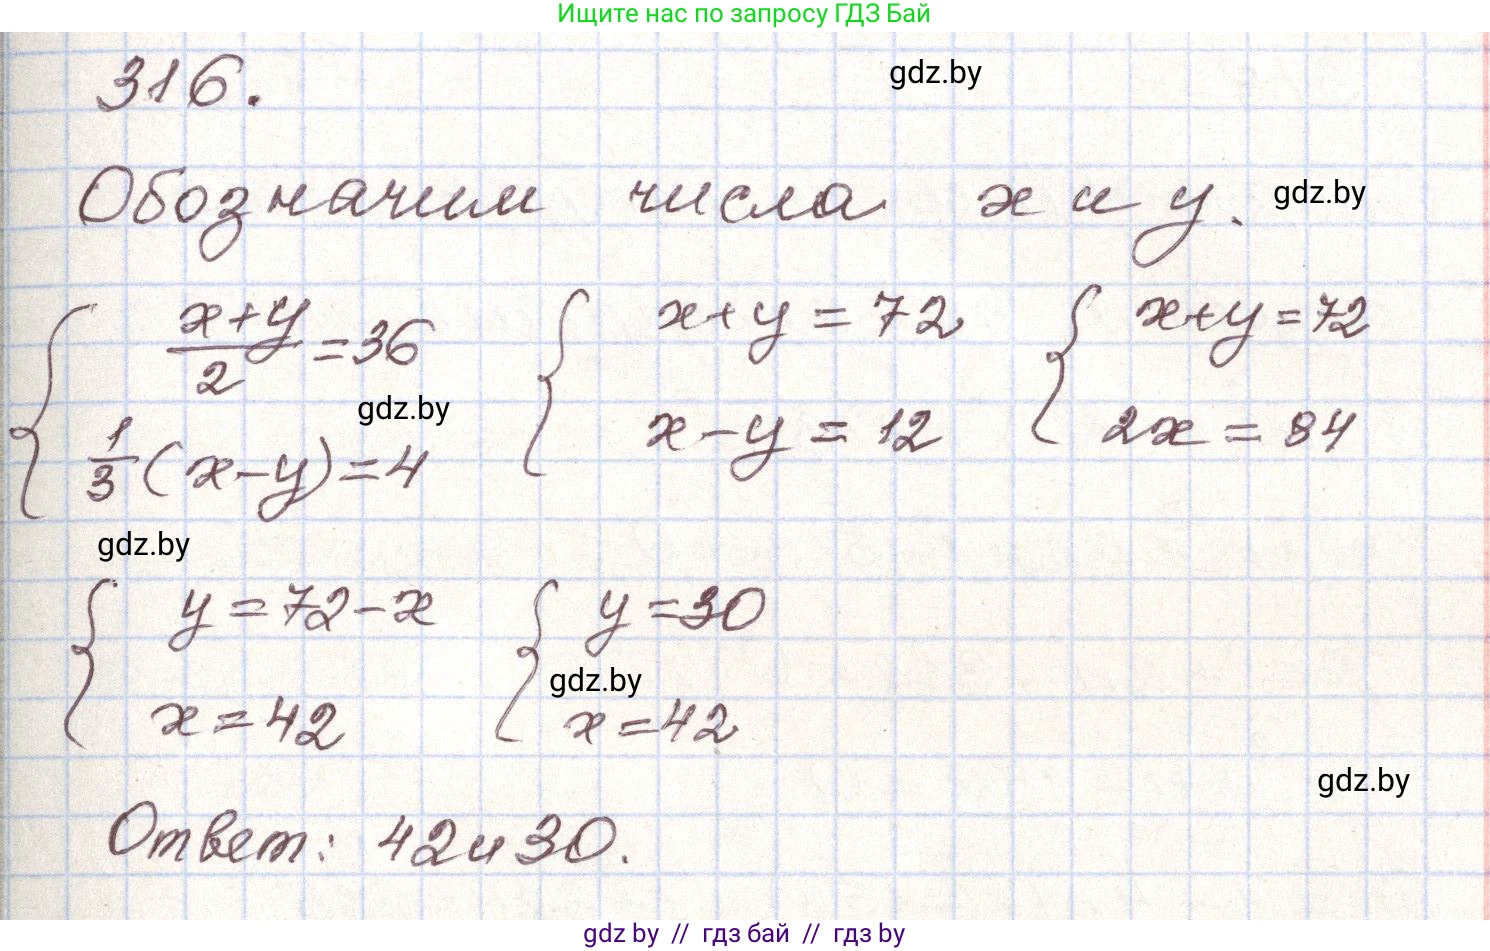 Ищите нас по запросу ГДЗ Бай
316.
gdz.by
Обозначим числа x и y.
gdz.by
{ (x+y)/2 = 36
1/3 (x-y) = 4
{ x+y = 72
x-y = 12
{ x+y = 72
2x = 84
gdz.by
gdz.by
{ y = 72-x
x = 42
{ y = 30
x = 42
gdz.by
gdz.by
Ответ: 42 и 30.
gdz.by // гдз бай // гдз by